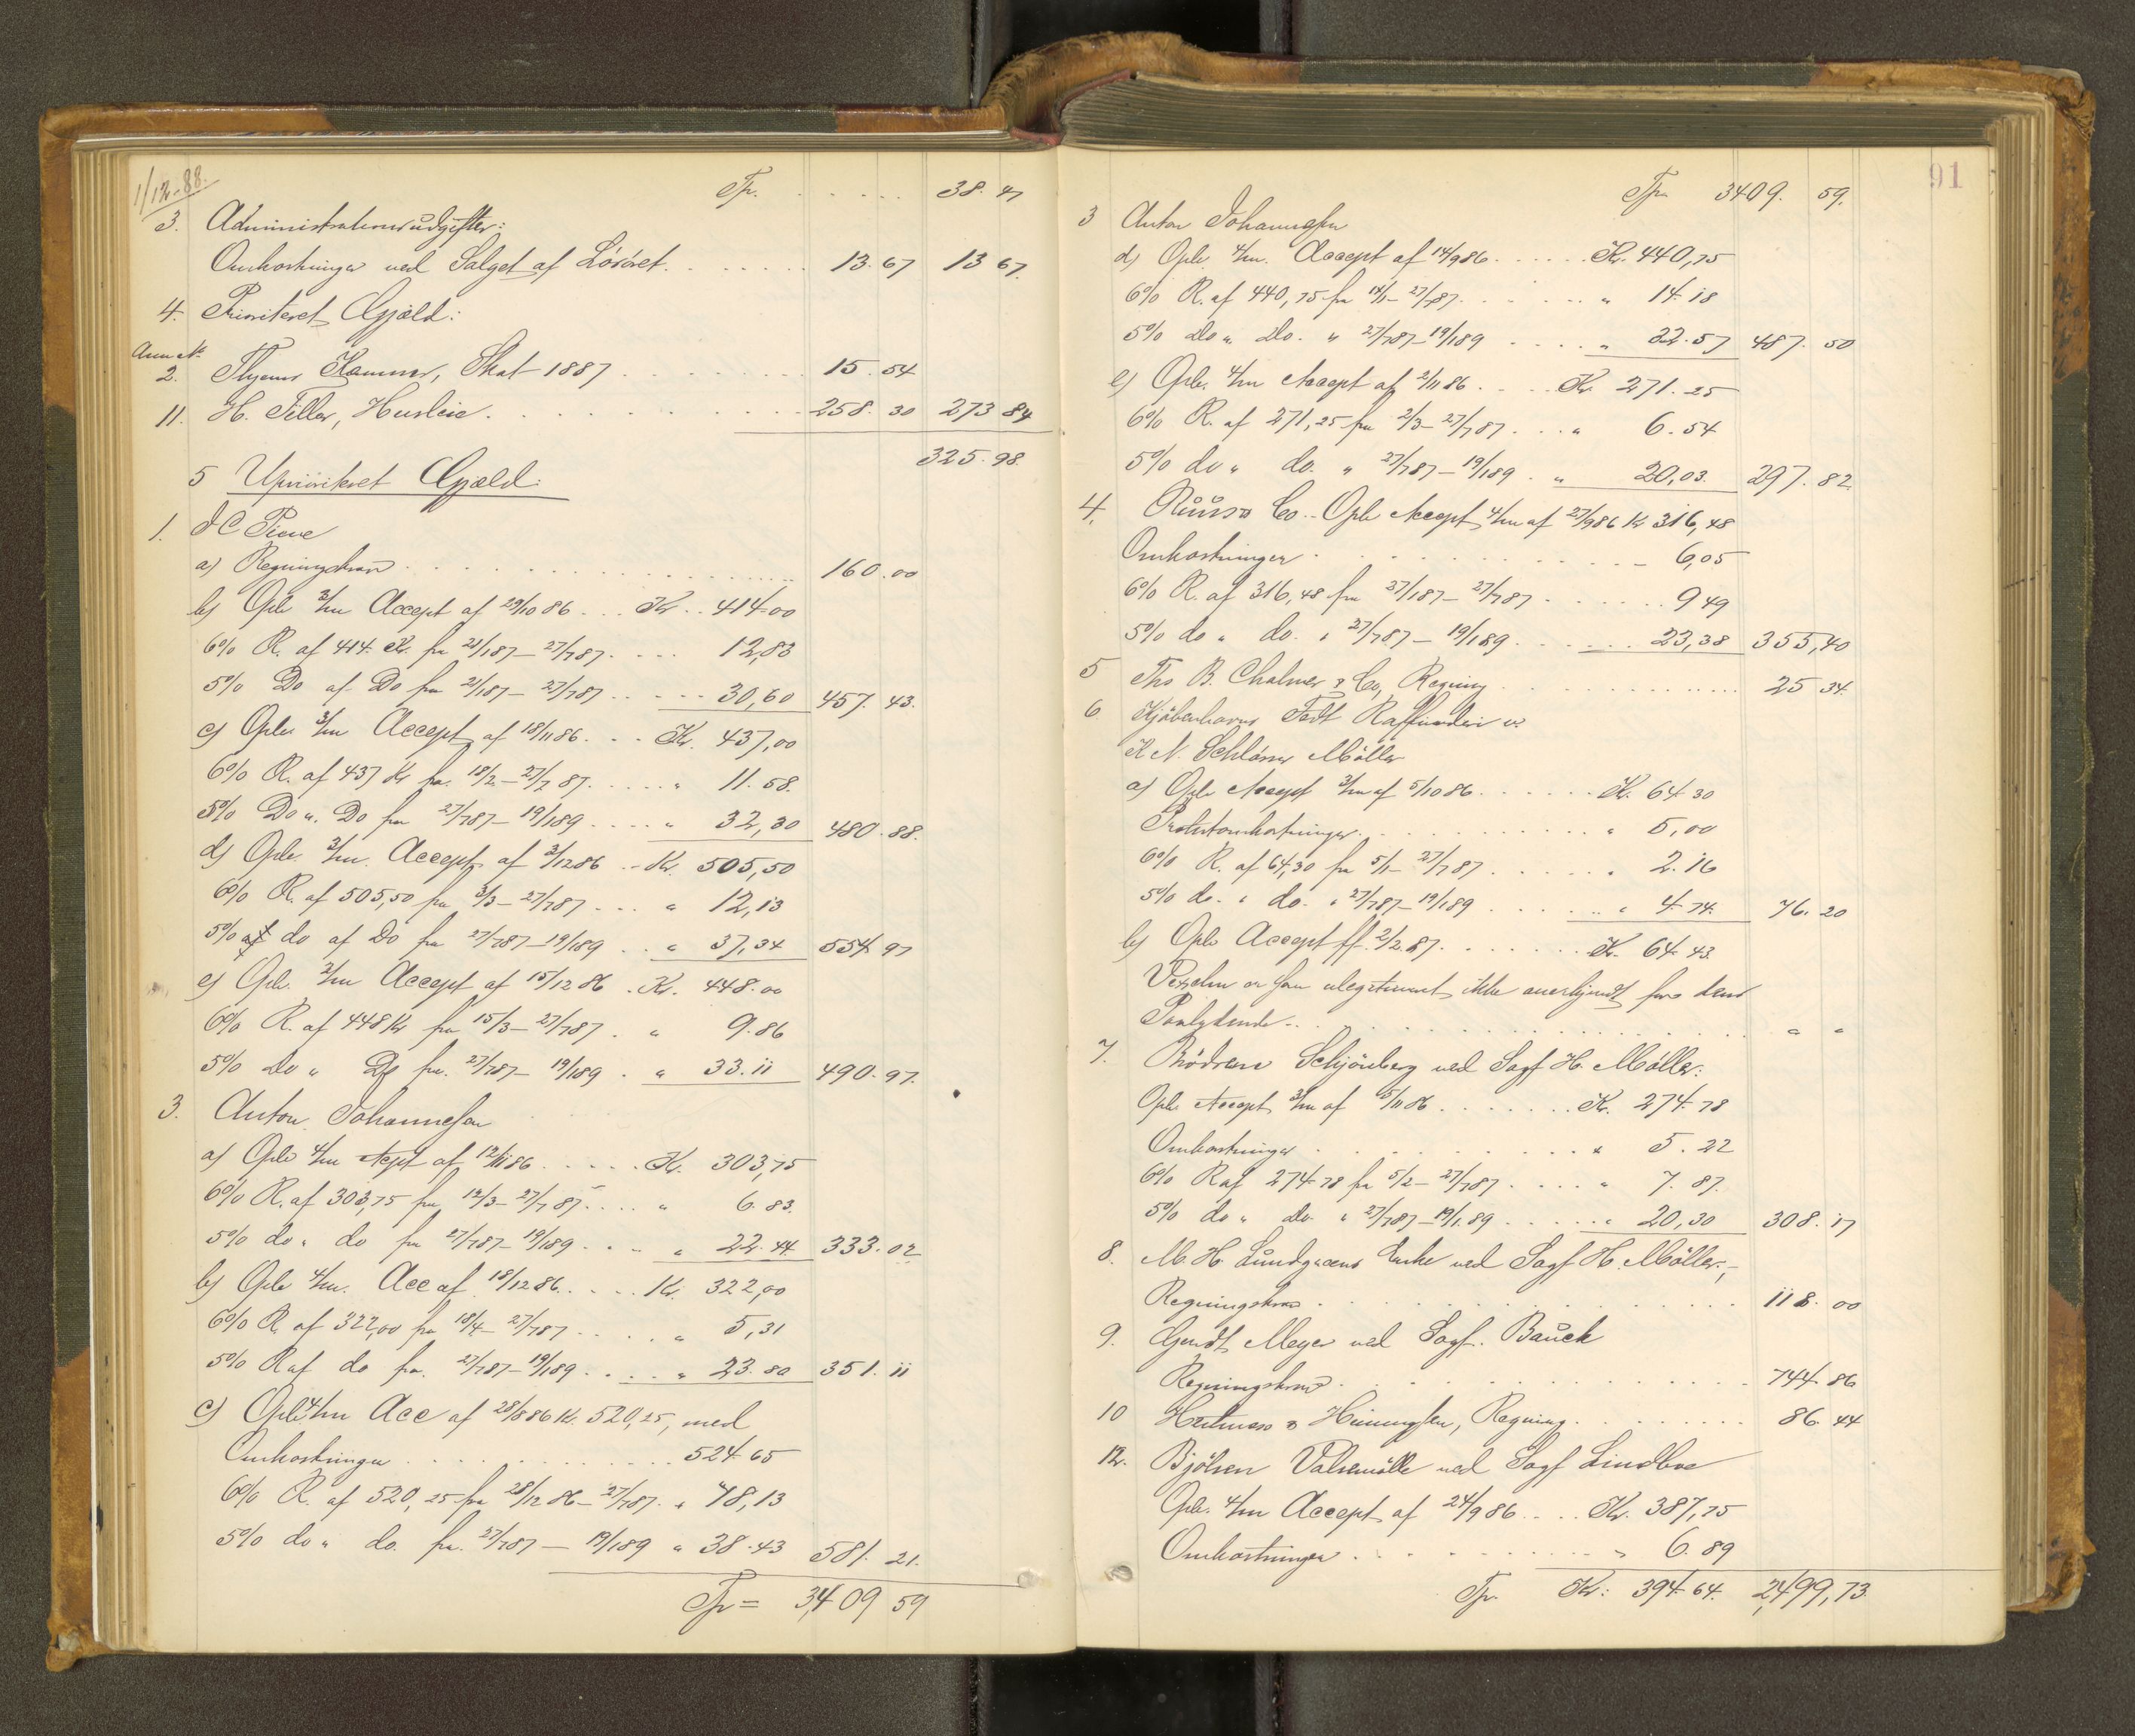 1/12-88.
Tpr. . . . . . 38.47
3. Administrationsudgifter:
Omkostninger ved Salget af Lösöret. . . . . . 13.67 13 67.
4. Prioriteret Gjæld:
Anm. No
2. Byens Kæmner, Skat 1887 . . . . . . 15.54
11. H. Tiller, Husleie . . . . . . 258.30 273 84
325.98.
5 Uprioriteret Gjæld:
1. I C Piene
a) Regningskrav . . . . . . 160.00
b) Opls 3/m Accept af 29/10 86 . . . Kr . . 414.00
6% R. af 414. Kr. fra 21/1 87 – 27/7 87 . . . . 12,83
5% Do af Do fra 21/1 87 – 27/7 87 . . . . 30,60 457. 43.
c) Opls 3/m Accept af 18/11 86 . . . Kr. 437,00
6% R. af 437 Kr fra 18/2 – 27/7 87. . . . . " 11.58.
5% Do ". Do fra 27/7 87 – 19/1 89 . . . . " 32,30 480.88.
d) Opls. 3/m. Accept af 3/12 86 . – Kr. 505,50
6% R. af 505,50 fra 3/3 – 27/7 87 . . . " 12,13
5% af do af Do fra 27/7 87 – 19/1 89 . . " 37,34 554.97
e) Opls. 3/m Accept af 15/12 86 . Kr. 448.00
6% R. af 448 Kr fra 15/3 – 27/7 87 . " 9.86
5% Do " Do fra. 27/7 87 – 19/1 89 . " 33.11 490.97.
3. Anton Johannesen
a) Opls 4/m Acpt af 12/11 86 . . . . . Kr. 303,75
6% R. af 303,75 fra 12/3 – 27/7 87 . . . . " 6.83.
5% do " do fra 27/7 87 – 19/1 89 . . – " 22.44 333.02
b) Opls 4/m. Acc af 18/12 86 . . . . Kr. 322,00
6% R. af 322,00 fra 18/4 – 27/7 87 . . . . " 5,31
5% R af do fra. 27/7 87 – 19/1 89 . . . . " 23.80 351.11
c) Opls 4/m Acc af 28/8 86 Kr. 520,25, med
Omkostninger . . . . . . 524.65
6% R. af 520,25 fra 28/12 86 – 27/7 87. " 18,13
5% do " do. fra. 27/7 87 – 19/1 89 " 38.43 581. 21.
Tpr = 3409 59
91
Tpr 3409. 59.
3 Anton Johannesen
d) Opls. 4/m. Accept af 14/9 86 . . . . . Kr. 440,75
6% R. af 440,75 fra 14/1 – 27/7 87 . . . . . . " 14.18
5% do " Do. " 27/7 87 – 19/1 89 . . . . " 32.57 487. 50
e) Opls. 4/m Accept af 2/11 86 . . . . Kr 271.25
6% R. af 271,25 fra 2/3 – 27/7 87 . . . " 6.54
5% do " do. " 27/7 87 – 19/1 89 . " 20,03. 297.82.
4. Ruus & Co. – Opls Accept 4/m af 27/9 86 Kr 316,48
Omkostninger . . . . . . – 6,05
6% R. af 316,48 fra 27/1 87 – 27/7 87 . . . . . . 9 49
5% do " do. " 27/7 87 – 19/1 89 . . . . . . 23,38 355,40
5 Ths B. Chalmer & Co, Regning . . . . . . 25 34.
6 Kjöbenhavns Fedt Raffinaderi v.
A N. Schlösser Möller
a) Opls Accept 3/m af 5/10 86 . . . . . . Kr. 64 30
Protestomkostninger . . . . . . " 5,00
6% R. af 64,30 fra 5/1 – 27/7 87 . . . . . . " 2.16
5% do. " do. " 27/7 87 – 19/1 89 . . . . . . " 4.74. 76. 20
b) Opls Accept ff. 2/2 87. . . . . . . Kr. 64 43.
Vexelen er som ulegitimeret ikke anerkjendt for dens
Paalydende – . . . . . . " "
7. Brödrene Schjönberg ved Sagf H. Möller:
Opls Accept 3/m af 5/11 86 . . . . . . Kr. 274.78
Omkostninger . . . . . . " 5.22
6% R af 274.78 fra 5/2 – 27/7 87 . . . . " 7. 87.
5% do " do " 27/7 87 – 19/1.89 . . . . . " 20,30 308.17
8. M. H. Lundgreens Enke ved Sagf H. Möller. –
Regningskrav . . . . . . 118.00
9. Gerdt Meyer ved Sagf. Bauck
Regningskrav . . . . . . 744.86
10 Hartmann & Henningsen, Regning . . . . . . 86.44
12. Bjölsen Valsemölle ved Sagf Lindboe
Opls. 4/m Accept af 24/9 86 . . . . Kr. 387,75
Omkostninger . . . . . . " 6.89
Tpr. Kr: 394.64. 2,499,73.